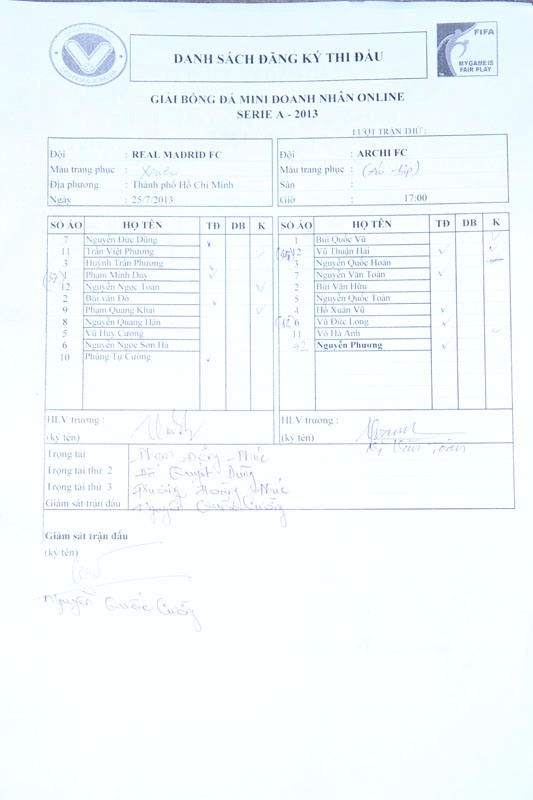 DANH SÁCH ĐĂNG KÝ THI ĐẤU
FIFA
MY GAME IS
FAIR PLAY
GIẢI BÓNG ĐÁ MINI DOANH NHÂN ONLINE
SERIE A - 2013
LƯỢT TRẬN THỨ :
Đội : REAL MADRID FC
Màu trang phục :
Địa phương : Thành phố Hồ Chí Minh
Ngày : 25/7/2013
Đội : ARCHI FC
Màu trang phục :
Sân :
Giờ : 17:00
SỐ ÁO HỌ TÊN TĐ DB K
7 Nguyễn Đức Dũng
11 Trần Việt Phương
3 Huỳnh Trần Phương
1 Phạm Minh Duy
12 Nguyễn Ngọc Toàn
2 Bùi văn Đô
9 Phạm Quang Khải
8 Nguyễn Quang Hân
5 Vũ Huy Cương
6 Nguyễn Ngọc Sơn Hà
10 Phùng Tự Cường
SỐ ÁO HỌ TÊN TĐ DB K
1 Bùi Quốc Vũ
12 Vũ Thuận Hải
3 Nguyễn Quốc Hoàn
7 Nguyễn Văn Toàn
2 Bùi Văn Hữu
5 Nguyễn Quốc Toàn
4 Hồ Xuân Vũ
(12) 6 Vũ Đức Long
11 Võ Hà Anh
Nguyễn Phương
HLV trưởng :
(ký tên)
HLV trưởng :
(ký tên)
Trọng tài
Trọng tài thứ 2
Trọng tài thứ 3
Giám sát trận đấu Nguyễn Quốc Cường
Giám sát trận đấu
(ký tên)
Nguyễn Quốc Cường